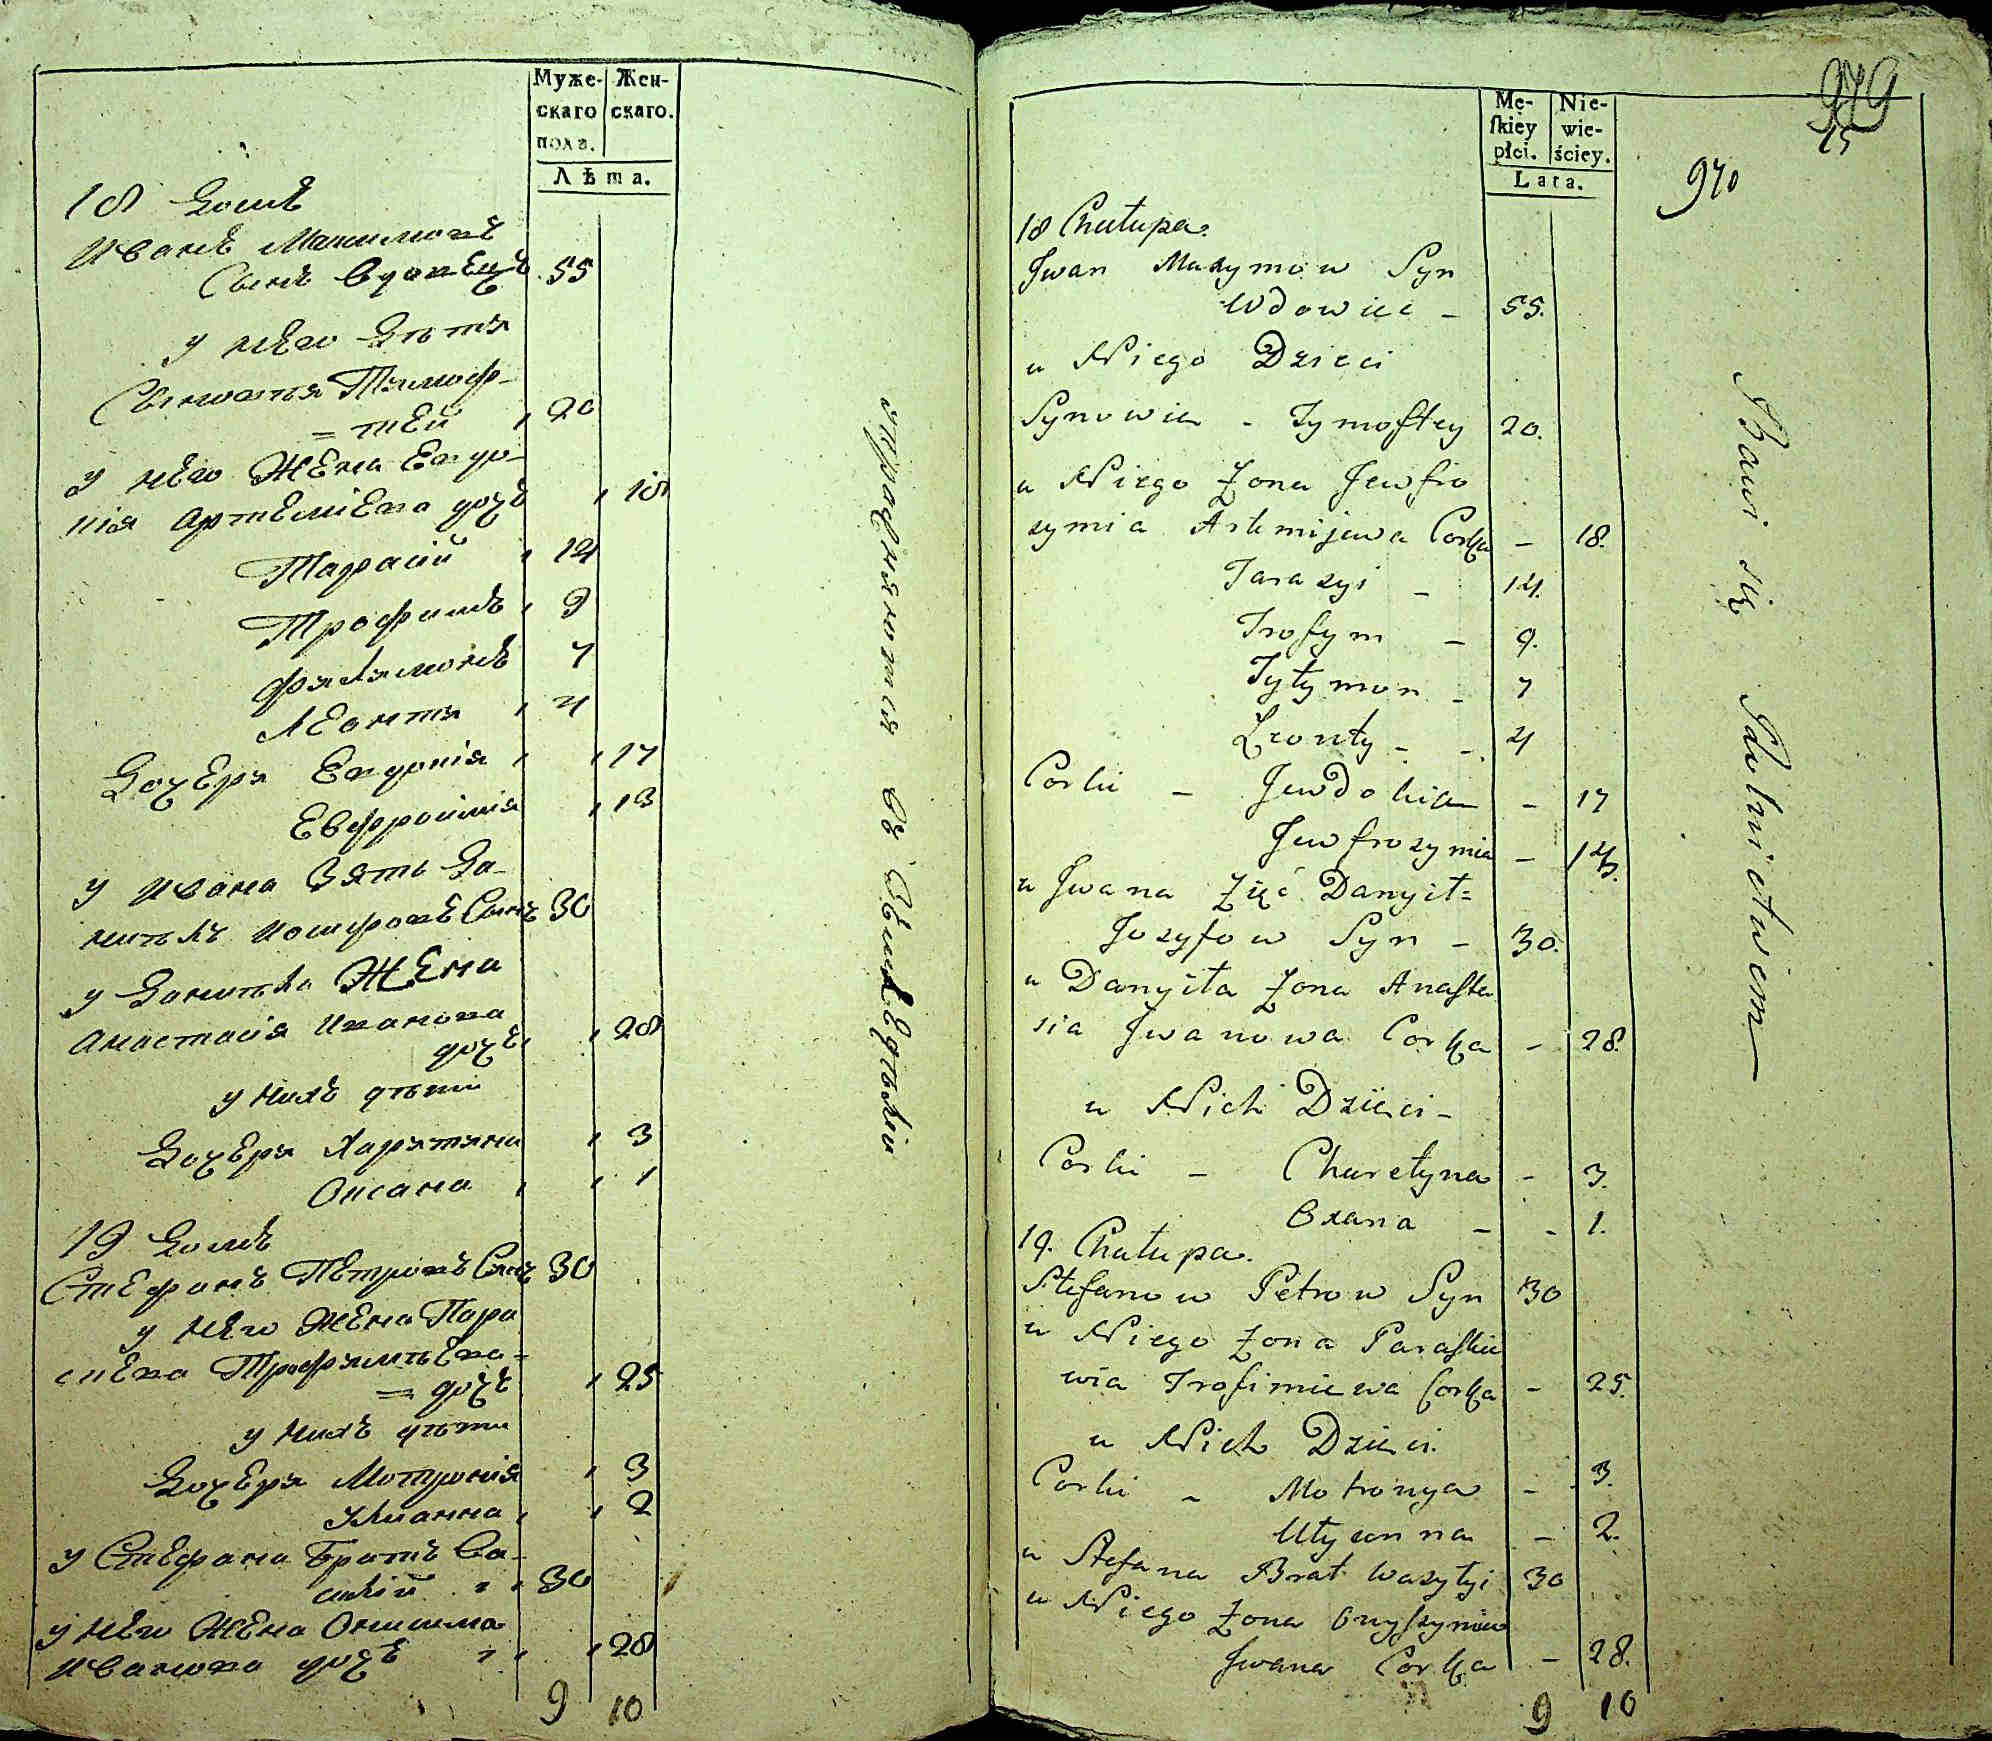 Муже-
скаго
пола.
Жен-
скаго.
Лѣта.
18 Домъ
Иванъ Максимовъ
Сынъ Вдовецъ 55
у него Дѣти
Сыновья Тимоф-
=тей , 20
у него Жена Евдо-
кія Артеміева дочь , 18
Тарасій , 14
Трофимъ , 9
Филимонъ 7
Леонти , 4
Дочери Евдокія , , 17
Евфросинія , 13
у Ивана Зять Да-
нилъ Иосифовъ Сынъ 30
у Данила Жена
Анастасія Иванова
дочь , , 28
у нихъ дѣти
Дочери Харитина , 3
Оксана , , 1
19 Домъ
Стефанъ Петровъ Сынъ 30
у него Жена Пара
скева Трофимѣева=
= дочь , 25
у нихъ дѣти
Дочери Мотронія , 3
Улианна , , 2
у Стефана Братъ Ва-
силій , , 30
у него Жена Онисима
Иванова дочь , , , 28
9 10
упражняются въ Земледѣліи
979
15
970
Mę-
skiey
płci.
Nie-
wie-
ściey.
Lata.
18 Chałupa.
Jwan Maxymow Syn
Wdowiec - 55.
u Niego Dzieci
Synowie - Tymoftey 20.
u Niego Żona Jewfro
zymia Artemijewa Corka - 18.
Tarazyi - 14.
Trofym - 9.
Fyłymon - 7
Leonty - - 4
Corki - Jewdokia - 17
Jewfrozymia - 13.
u Jwana Zięć Danyił=
Jozyfow Syn - 30.
u Danyiła Żona Anasta
sia Jwanowa Corka - 28.
u Nich Dzieci -
Corki - Charetyna - 3.
Oxana - - 1.
19. Chałupa.
Stefanow Petrow Syn 30
u Niego Żona Paraskie
wia Trofimiewa Corka - 25.
u Nich Dzieci.
Corki - Motronya - 3.
Ulyanna - 2.
u Stefana Brat Wasyłyi 30
u Niego Żona Onyszymia
Jwana Corka - 28.
9 10
Bawi się Rolnictwem